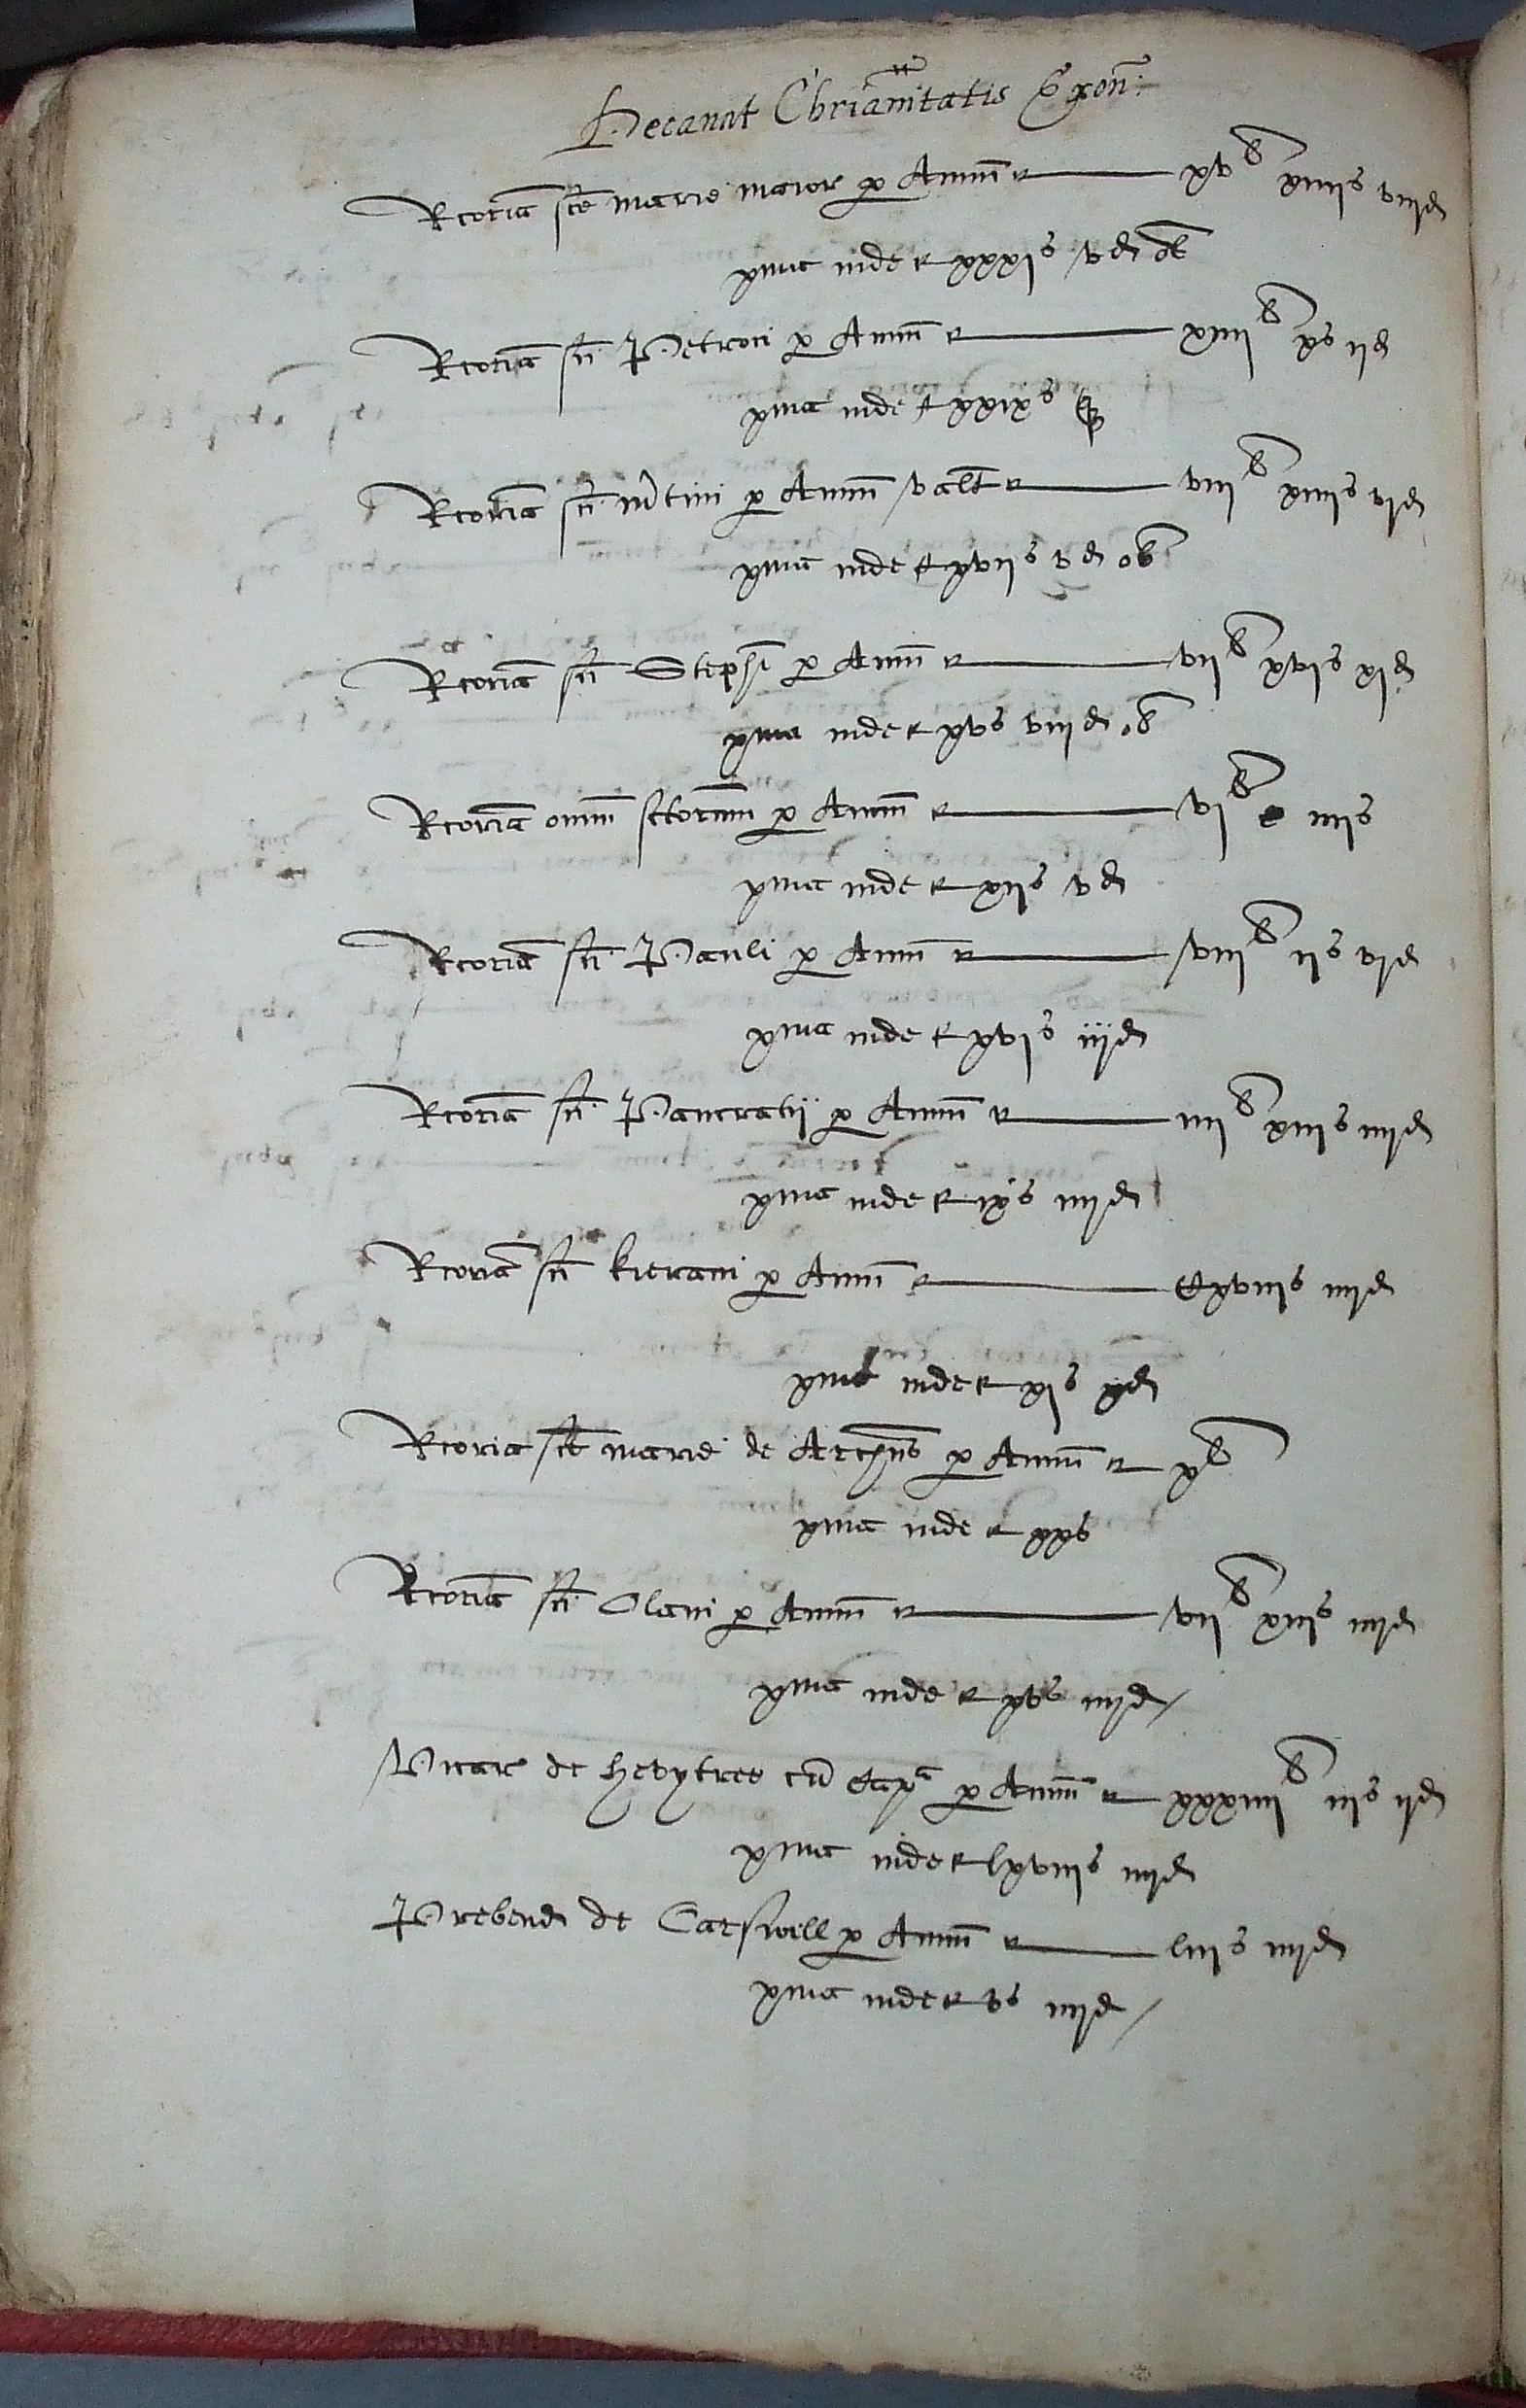 Decanat Chrianitatis Exon:
Rcoria sce marie maior p Annu xvli xiiijs viijd
xma inde xxxjs vd ob
Rcoria sci Petroci p Annu xiiijli xs ijd
xma inde xxixs
Rcoria sci Mrtini p Annu valt viijli xiiijs vjd
xma inde xvijs vd ob
Rcoria sci Stephi p Annu vijli xvjs xjd
xma inde xvs viijd ob
Rcoria omniu sctorum p Annu vjli iiijs
xma inde xijs vd
Rcoria sci Pauli p Annu viijli ijs vjd
xma inde xvjs iijd
Rcoria sci Pancratij p Annu iiijli xiijs iiijd
xma inde ixs iiijd
Rcoria sci kierani p Annu Cxviijs iiijd
xma inde xjs xd
Rcoria sce marie de Archus p Annu xli
xma inde xxs
Rcoria sci Olavi p Annu vijli xiijs iiijd
xma inde xvs iiijd
Vicar de hevytree cu Capa p Annu xxxiiijli iijs ijd
xma inde lxviijs iiijd
Prebend de Carswill p Annu liijs iiijd
xma inde vs iiijd